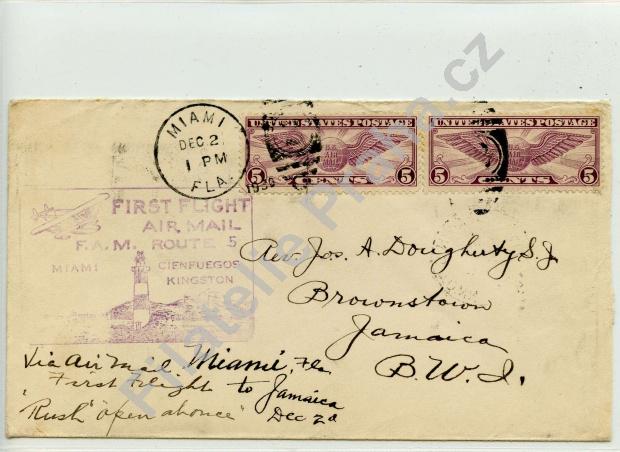 MIAMI
DEC 2
1 PM
FLA.
1930
UNITED STATES POSTAGE
U.S. AIR MAIL
5 CENTS 5
UNITED STATES POSTAGE
5 CENTS 5
FIRST FLIGHT
AIR MAIL
F.A.M. ROUTE 5
MIAMI
CIENFUEGOS
KINGSTON
Rev. Jos. A. Dougherty S.J.
Brownstown
Jamaica
B.W.I.
Via Air Mail Miami, Fla.
First Flight to Jamaica
"Rush" "open at once" Dec 2d
Filatelie Praha.cz